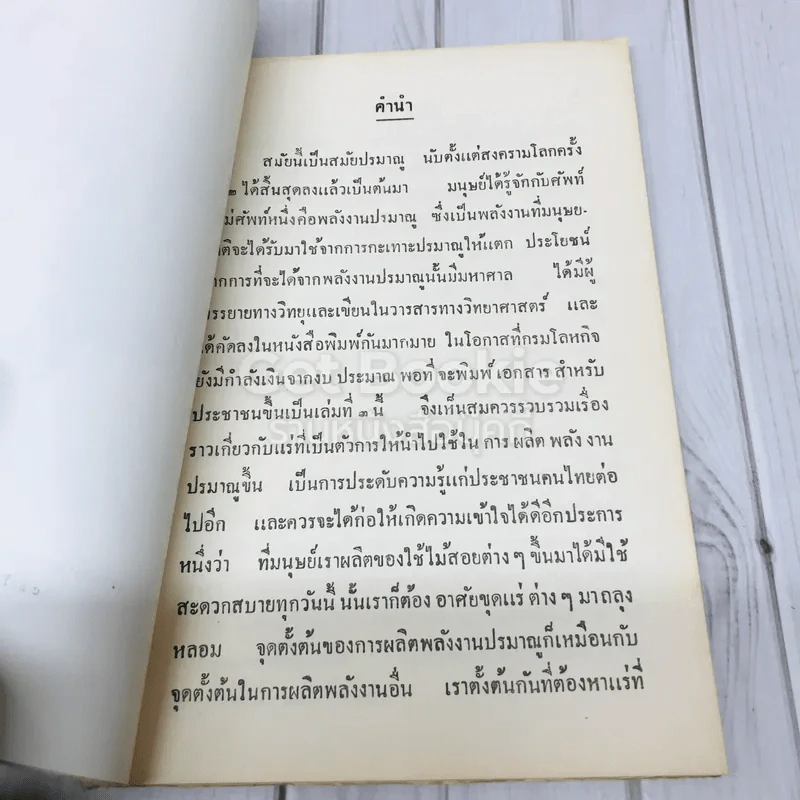 คำนำ
สมัยนี้เป็นสมัยปรมาณู นับตั้งแต่สงครามโลกครั้ง
๒ ได้สิ้นสุดลงแล้วเป็นต้นมา มนุษย์ได้รู้จักกับศัพท์
ม่ศัพท์หนึ่งคือพลังงานปรมาณู ซึ่งเป็นพลังงานที่มนุษย-
าติจะได้รับมาใช้จากการกะเทาะปรมาณูให้แตก ประโยชน์
ากการที่จะได้จากพลังงานปรมาณูนั้นมีมหาศาล ได้มีผู้
รรยายทางวิทยุและเขียนในวารสารทางวิทยาศาสตร์ และ
ได้คัดลงในหนังสือพิมพ์กันมากมาย ในโอกาสที่กรมโลหกิจ
ยังมีกำลังเงินจากงบ ประมาณ พอที่ จะพิมพ์ เอกสาร สำหรับ
ประชาชนขึ้นเป็นเล่มที่ ๓ นี้ จึงเห็นสมควรรวบรวมเรื่อง
ราวเกี่ยวกับแร่ที่เป็นตัวการให้นำไปใช้ใน การ ผลิต พลัง งาน
ปรมาณูขึ้น เป็นการประดับความรู้แก่ประชาชนคนไทยต่อ
ไปอีก และควรจะได้ก่อให้เกิดความเข้าใจได้ดีอีกประการ
หนึ่งว่า ที่มนุษย์เราผลิตของใช้ไม้สอยต่าง ๆ ขึ้นมาได้มีใช้
สะดวกสบายทุกวันนี้ นั้นเราก็ต้อง อาศัยขุดแร่ ต่าง ๆ มาถลุง
หลอม จุดตั้งต้นของการผลิตพลังงานปรมาณูก็เหมือนกับ
จุดตั้งต้นในการผลิตพลังงานอื่น เราตั้งต้นกันที่ต้องหาแร่ที่
Get Bookie
ร้านหนังสือบุ๊คกี้